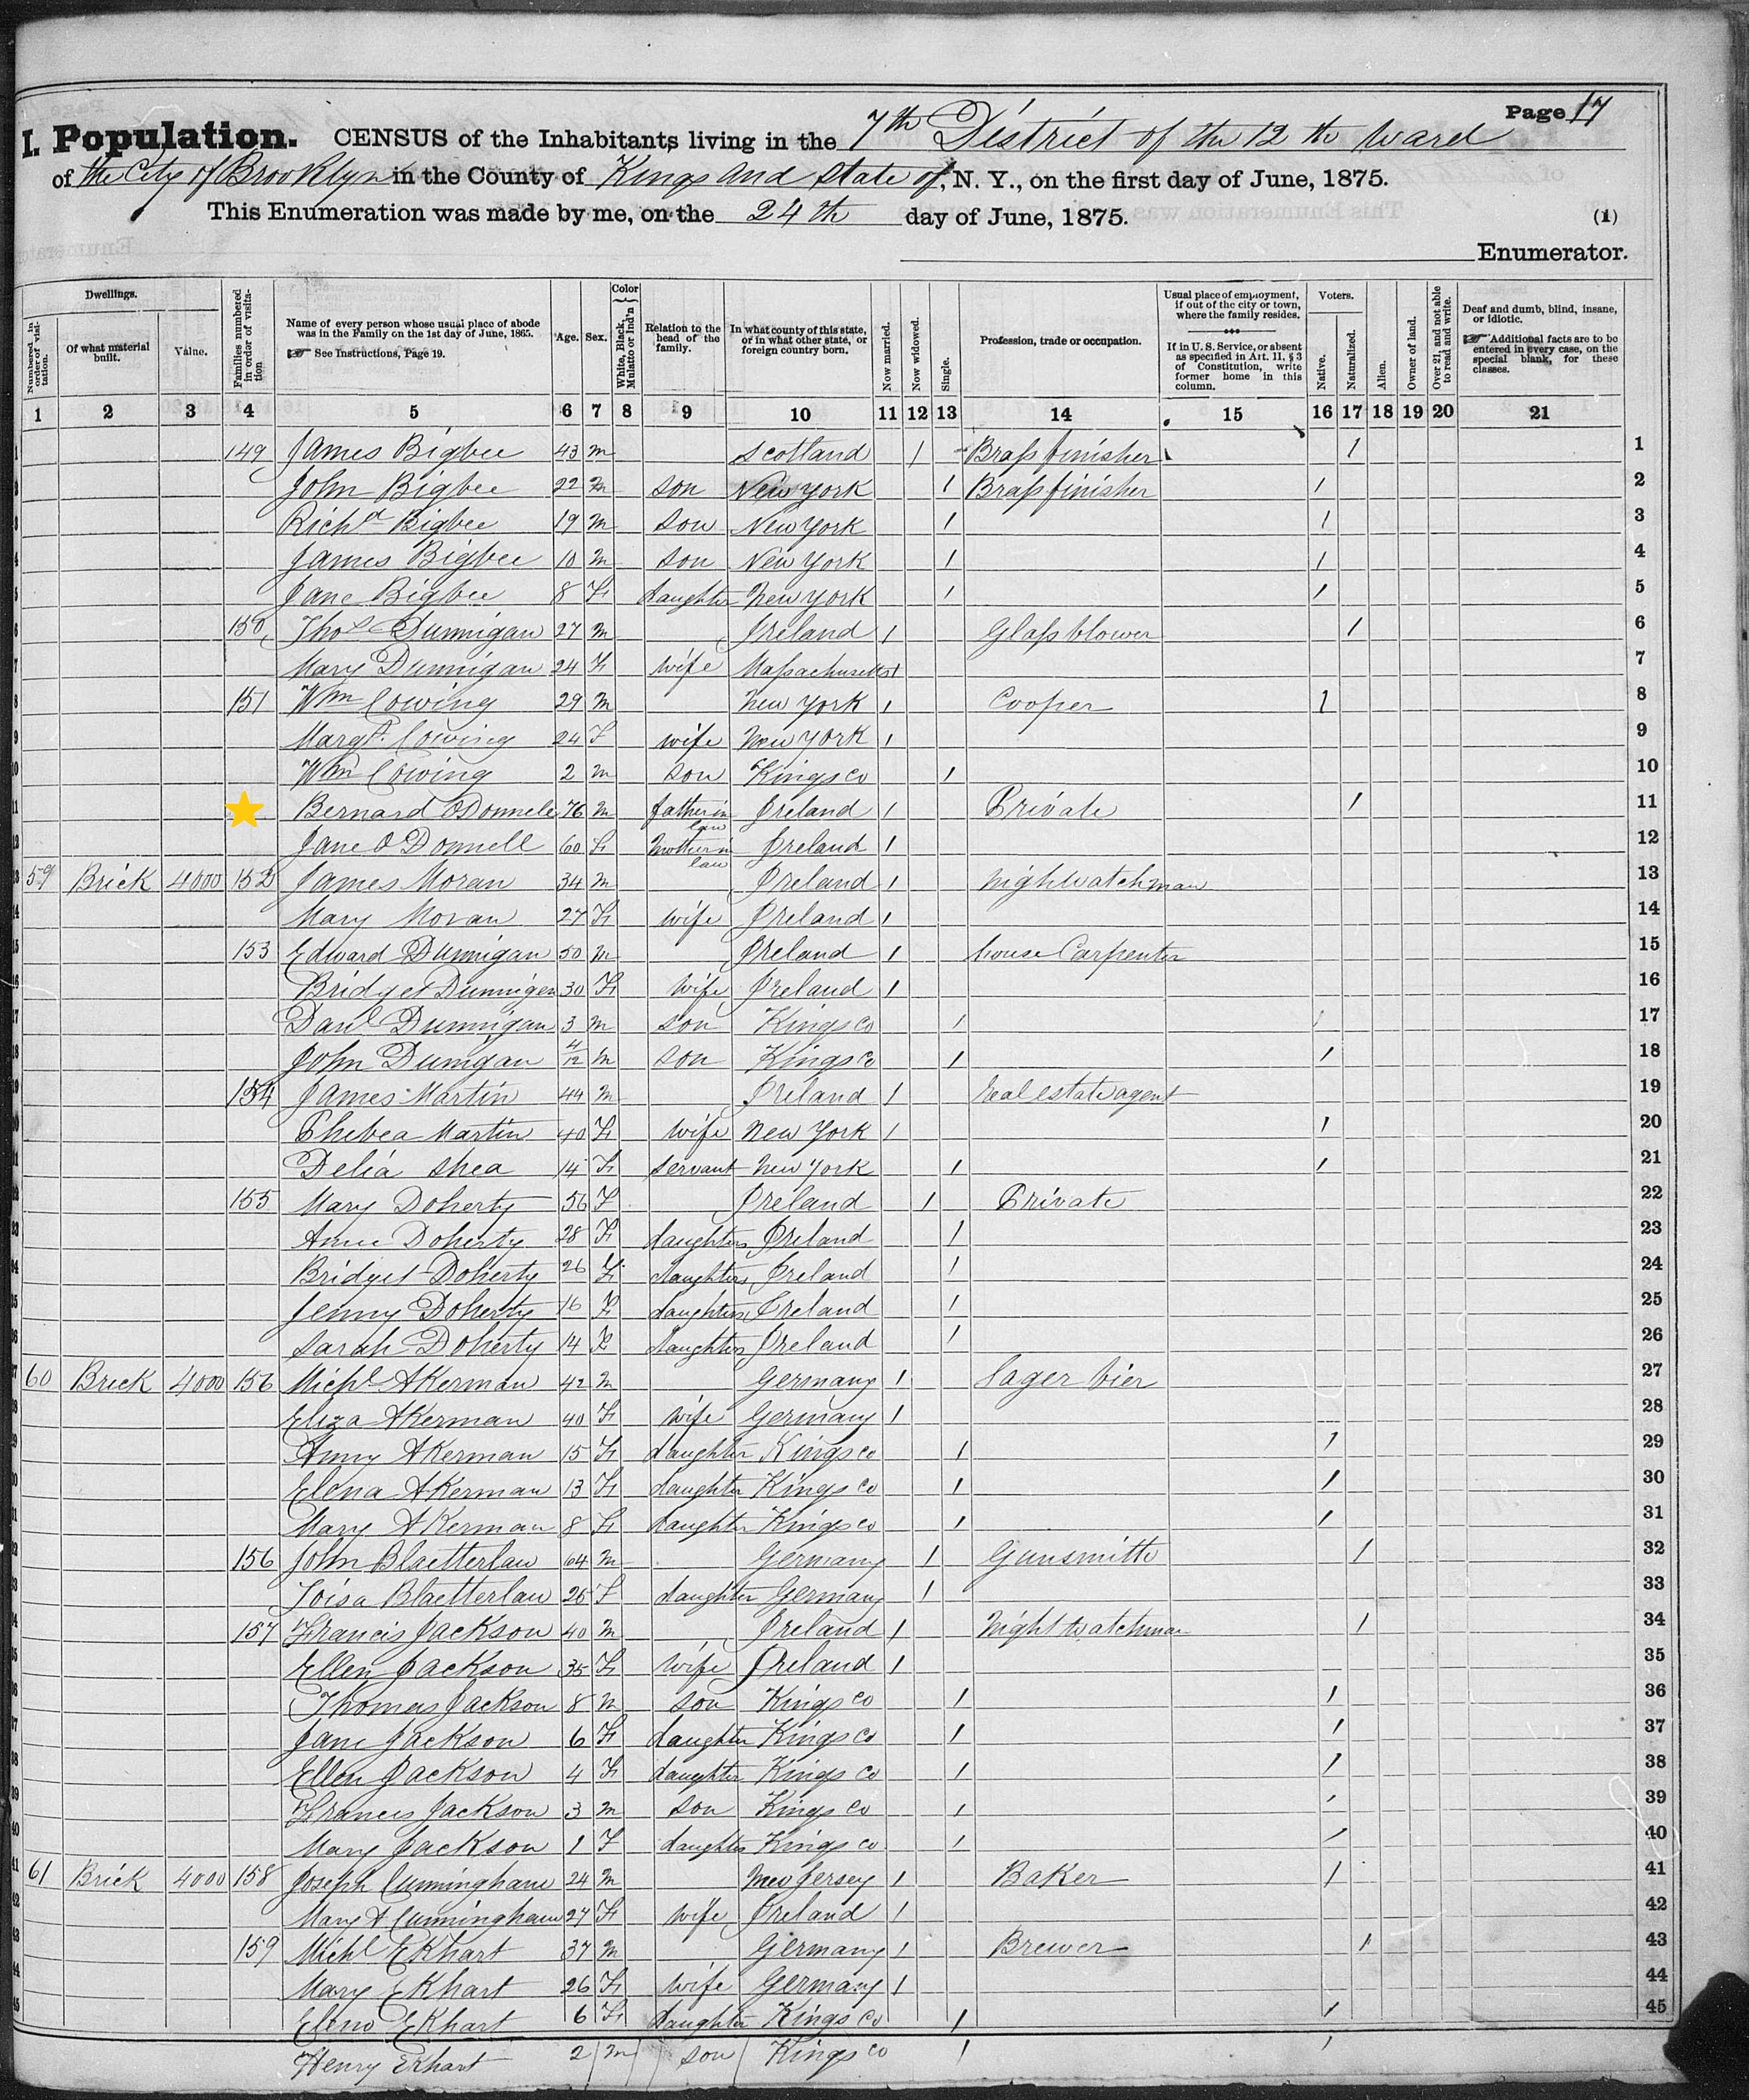 Page 17
I. Population. CENSUS of the Inhabitants living in the 7th District of the 12th Ward
of the City of Brooklyn in the County of Kings and State of, N. Y., on the first day of June, 1875.
This Enumeration was made by me, on the 24th day of June, 1875. (1)
Enumerator.
Dwellings.
Numbered in order of visitation.
Of what material built.
Value.
Families numbered in order of visitation
Name of every person whose usual place of abode was in the Family on the 1st day of June, 1865.
See Instructions, Page 19.
Age.
Sex.
Color
White, Black, Mulatto or Ind'n
Relation to the head of the family.
In what county of this state, or in what other state, or foreign country born.
Now married.
Now widowed.
Single.
Profession, trade or occupation.
Usual place of employment, if out of the city or town, where the family resides.
If in U. S. Service, or absent as specified in Art. 11, § 3 of Constitution, write former home in this column.
Voters.
Native.
Naturalized.
Alien.
Owner of land.
Over 21, and not able to read and write.
Deaf and dumb, blind, insane, or idiotic.
Additional facts are to be entered in every case, on the special blank, for these classes.
1 2 3 4 5 6 7 8 9 10 11 12 13 14 15 16 17 18 19 20 21
149 James Bigbee 43 m Scotland 1 Brass finisher 1 1
John Bigbee 22 m son New York 1 Brass finisher 1 2
Richd Bigbee 19 m son New York 1 1 3
James Bigbee 10 m son New York 1 1 4
Jane Bigbee 8 F daughter New York 1 1 5
150 Thos Dunnigan 27 m Ireland 1 Glass blower 1 6
Mary Dunnigan 24 F wife Massachusetts 1 7
151 Wm Cowing 29 m New York 1 Cooper 1 8
Margt. Cowing 24 F wife New York 1 9
Wm Cowing 2 m son Kings Co 1 10
Bernard O Donnele 76 m father in law Ireland 1 Private 1 11
Jane O Donnell 60 F Mother in law Ireland 1 12
59 Brick 4000 152 James Moran 34 m Ireland 1 nightwatchman 13
Mary Moran 27 F wife Ireland 1 14
153 Edward Dunnigan 50 m Ireland 1 house Carpenter 15
Bridget Dunnigen 30 F wife Ireland 1 16
Danl Dunnigan 3 m son Kings Co 1 1 17
John Dunigan 4/12 m son Kings Co 1 1 18
154 James Martin 44 m Ireland 1 real estate agent 19
Phebea Martin 40 F wife New York 1 1 20
Delia Shea 14 F servant New York 1 1 21
155 Mary Doherty 56 F Ireland 1 Private 22
Anne Doherty 28 F daughters Ireland 1 23
Bridget Doherty 26 F daughters Ireland 1 24
Jenny Doherty 16 F daughters Ireland 1 25
Sarah Doherty 14 F daughters Ireland 1 26
60 Brick 4000 156 Michl AKerman 42 m Germany 1 lager bier 27
Eliza AKerman 40 F wife Germany 1 28
Anny AKerman 15 F daughter Kings Co 1 1 29
Elena AKerman 13 F daughter Kings Co 1 1 30
Mary AKerman 8 F daughter Kings Co 1 1 31
156 John Blaetterlau 64 m Germany 1 Gunsmith 1 32
Loisa Blaetterlau 25 F daughter Germany 1 33
157 Francis Jackson 40 m Ireland 1 Night watchman 1 34
Ellen Jackson 35 F wife Ireland 1 35
Thomas Jackson 8 m son Kings Co 1 1 36
Jane Jackson 6 F daughter Kings Co 1 1 37
Ellen Jackson 4 F daughter Kings Co 1 1 38
Francis Jackson 3 m son Kings Co 1 1 39
Mary Jackson 1 F daughter Kings Co 1 1 40
61 Brick 4000 158 Joseph Cunningham 24 m New Jersey 1 Baker 1 41
Mary A Cunningham 27 F wife Ireland 1 42
159 Michl Ekhart 37 m Germany 1 Brewer 1 43
Mary Ekhart 26 F wife Germany 1 44
Eleno Ekhart 6 F daughter Kings Co 1 1 45
Henry Ekhart 2 m son Kings Co 1 1